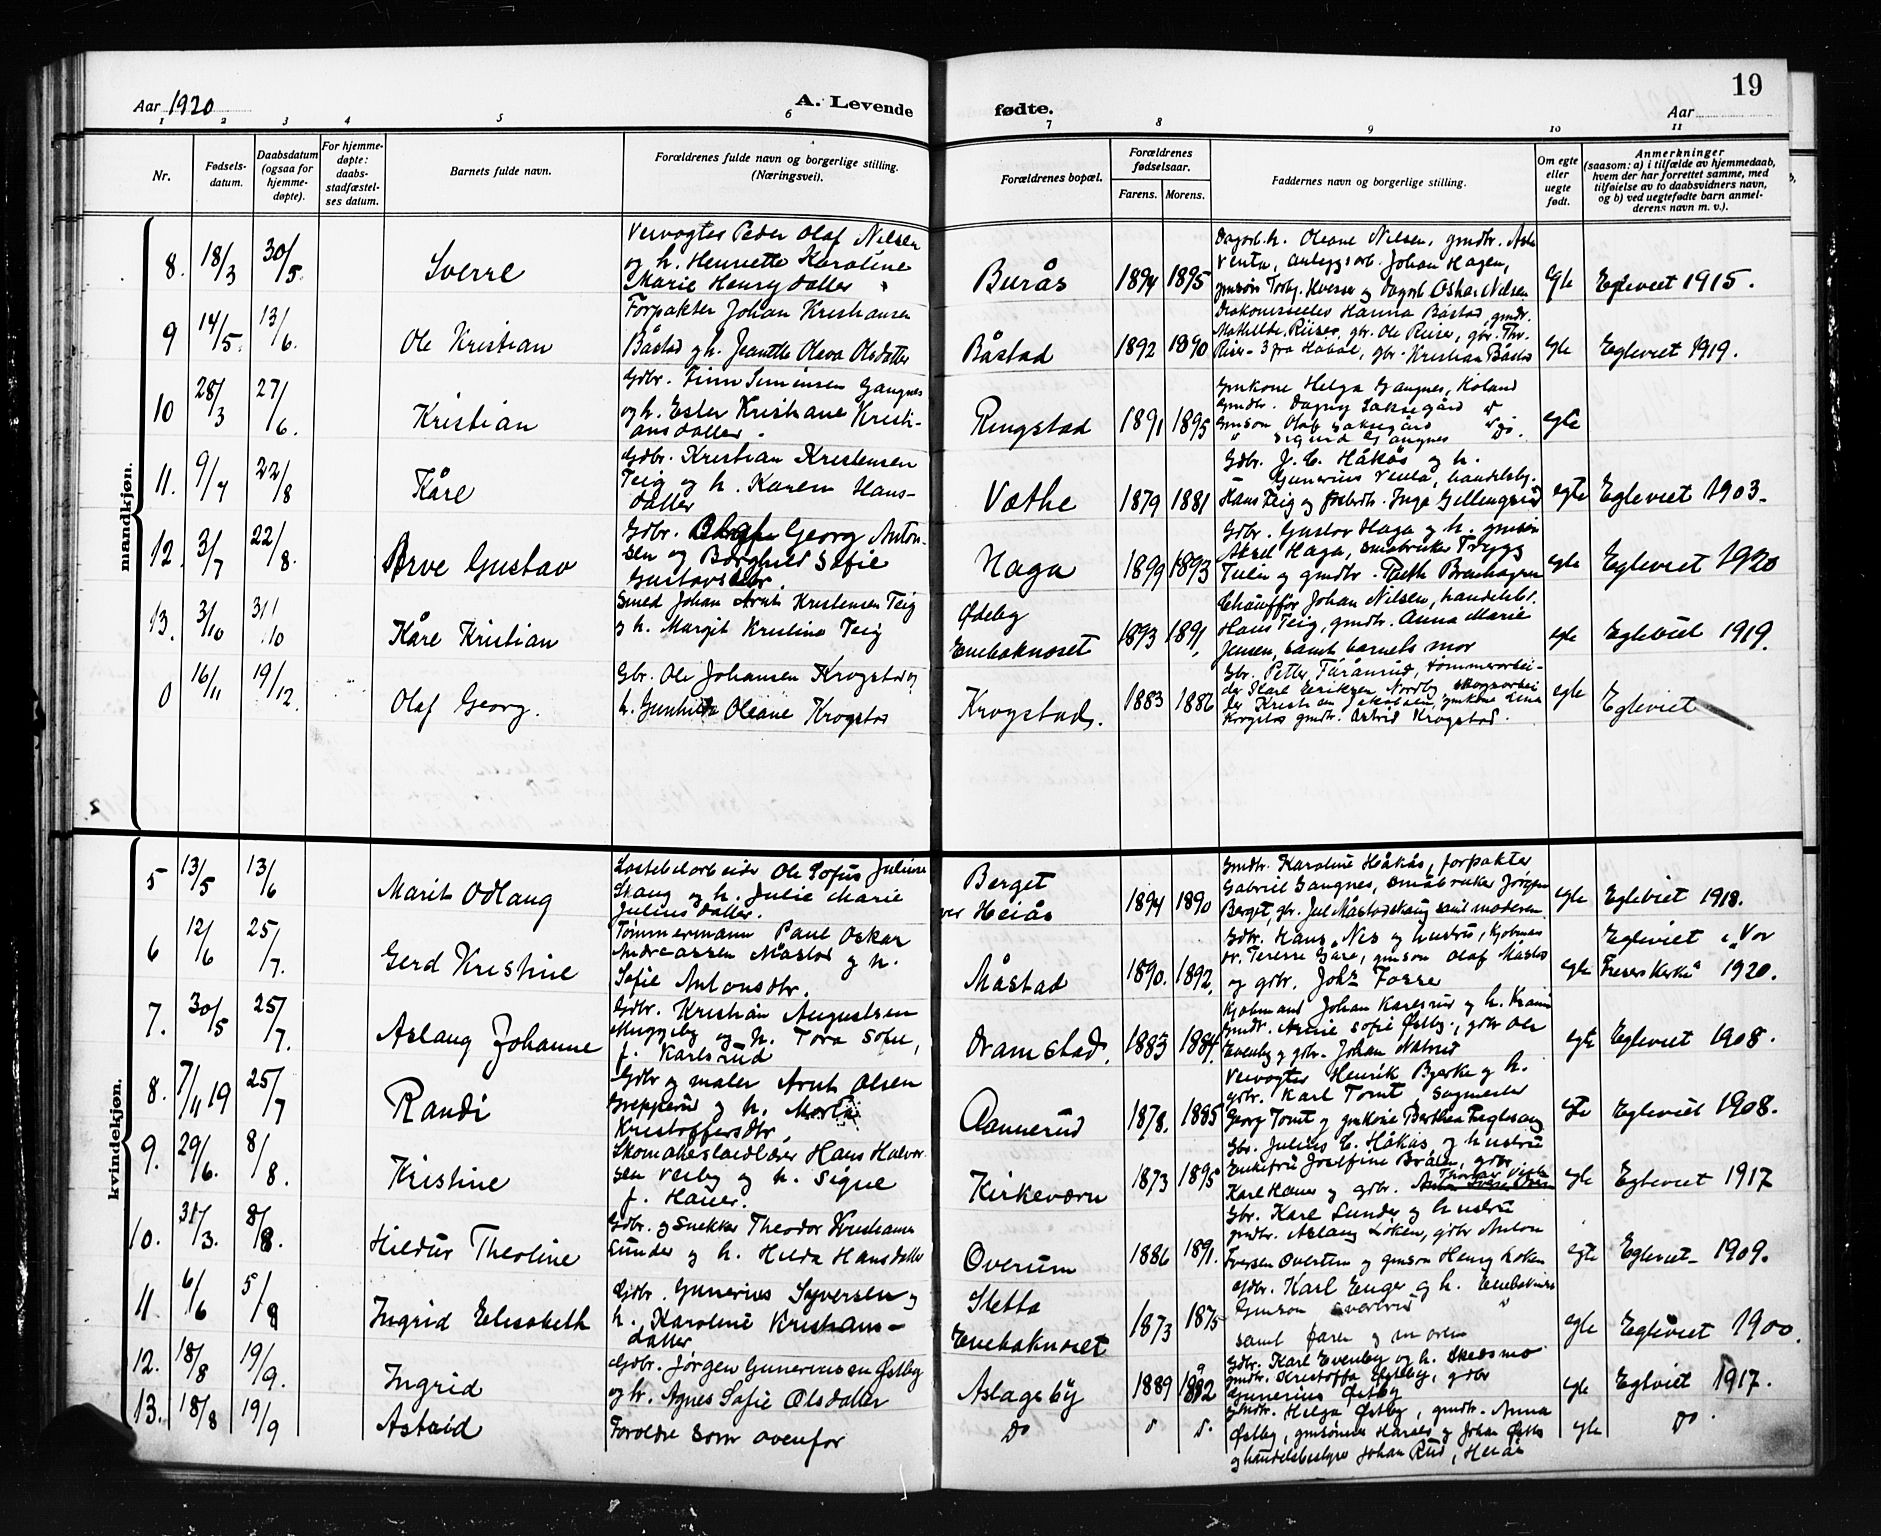 Aar 1920
A. Levende
fødte.
Aar
19
1 2 3 4 5 6 7 8 9 10 11
Nr.
Fødsels-
datum.
Daabsdatum
(ogsaa for
hjemme-
døpte).
For hjemme-
døpte:
daabs-
stadfæstel-
ses datum.
Barnets fulde navn.
Forældrenes fulde navn og borgerlige stilling.
(Næringsvei).
Forældrenes bopæl.
Forældrenes
fødselsaar.
Farens. Morens.
Faddernes navn og borgerlige stilling.
Om egte
eller
uegte
født.
Anmerkninger
(saasom: a) i tilfælde av hjemmedaab,
hvem der har forrettet samme, med
tilføielse av to daabsvidners navn,
og b) ved uegtefødte barn anmel-
derens navn m. v.).
mandkjøn.
8. 18/3 30/5. Sverre
Vervogter Peder Olaf Nilsen
og h. Henriette Karoline
Marie Henrydatter
Burås 1894 1895
Dagarb.h. Oleane Nilsen, gmdtr. Asta
Venta, anleggsarb. Johan Hagen,
gmsøn Torbj. Huser og dagarb Oskar Nilsen
egte Egteviet 1915.
9 14/5. 13/6. Ole Kristian
Forpakter Johan Kristiansen
Båstad og h. Jeanette Olava Olsdatter
Båstad 1892 1890
Diakonisselev Hanna Båstad, gmdt.
Mathilde Riiser, gbr. Ole Riise, gbr. Thv.
Riser - 3 fra Hobøl, gbr. Kristian Båstad
egte Egteviet 1919.
10 28/3 27/6. Kristian
Gdbr. Finn Simensen Gangnes
og h. Ester Kristiane Kristi-
ansdatter.
Ringstad 1891 1895
Gmkone Helga Gangnes,
Gmdtr. Dagny Saksegård
Gmsøn Olaf Saksegård
" Sigurd Gangnes do.
egte
11. 9/7 22/8 Kåre
Gdbr. Kristian Kristensen
Teig og h. Karen Hans-
datter
Væthe 1879 1881
Gdbr. J. C. Håkås og h.
Gunerius Venta, handelsbj.
Hans Teig og Inga Gillungsrud
egte Egteviet 1903.
12. 3/7 22/8. Arve Gustav
Gdbr. Georg Anton-
sen og Borghild Sofie
Gustavsdtr.
Haga 1899 1893
Gdbr. Gustav Haga og h. gmsøn
Aksel Haga, småbruker Trygg
og gmdtr.
egte Egteviet 1920
13. 3/10 31/10 Kåre Kristian
Smed Johan Arnt Kristensen Teig
og h. Margit Kristine Teig
Ødeby
Enebaknæset 1893 1891,
Chauffør Johan Nilsen, handelsb.
Hans Teig, gmdtr. Anna Marie
Jensen, samt barnets mor
egte Egteviet 1919.
0 16/11 19/12. Olaf Georg.
Gbr. Ole Johansen Krogstad og
h. Gunhilda Oleane Krogstad
Krogstad. 1883 1886
Gbr. Petter Tåråmrud, tømmerarbei-
der Karl Eriksen Nordby, skogsarbei
der Kristian Jakobsen, gmkone Lina
Krogstad gmdtr. Astrid Krogstad.
egte Egteviet
kvindekjøn.
5 13/5 13/6 Marit Odlaug
Ole Sofus Julius
Skaug og h. Julie Marie
Juliusdatter.
Berget
Heiås 1894 1890
Gmdtr. Karoline Håkås, forpakter
Gabriel Gangnes, småbruker Jørgen
Berget, gbr. Jul Måstadskaug samt moderen
egte Egteviet 1918.
6 12/6 25/7. Gerd Kristine
Tømmermann Paul Oskar
Andreassen Måstad og h.
Sofie Antonsdtr.
Måstad 1890. 1892.
Gdbr. Hans Nes og hustru, kjøbmas
dr. Terese Gare, gmson Olaf Måstad
og gdbr. Johs Fosser
egte Egteviet i „Vor
Fresers Kirke“ 1920.
7. 30/5 25/7. Aslaug Johanne
Gdbr. Kristian Augustsen
Muggeby og h. Tora Sofie,
f. Karlsrud
Dramstad, 1883 1884.
Kjøbmand Johan Karlsrud og h. Kråin
Gmdtr. Annie Sofie Østby, gdbr Ole
Evenby og gdbr. Johan Nabrud
egte Egteviet 1908.
8. 7/11 19 25/7 Randi
Gdbr og maler Arnt Olsen
Grepperud og h. Marta
Kristoffersdtr.
Aannerud 1878. 1885
Vervogter Henrik Bjerke og h.
gdbr. Karl Tomt Sagmester
Georg Tomt og gmkone Berthea Fuglesang
egte Egteviet 1908.
9. 29/6. 8/8. Kristine
Skomakerlaidlæser Hans Halvor
sen Vestby og h. Signe
f. Hauer.
Kirkeværn 1873 1895
Gbr. Julius C. Håkås og hustru
Enkefru Josefine Bråten, gdbr.
Karl Hauer og gdbr. Thorvar Vestby
egte Egteviet 1917
10. 31/3. 8/8. Hildur Theoline
Gdbr. og Snekker Theodor Kristiansen
Lunder og h. Hilda Hansdatter
Overum 1886 1891.
Gbr. Karl Lunder og hustru
gmdtr. Aslaug Løken, gdbr Anton
Iversen Overum og gmsøn Henry Løken
egte Egteviet 1909.
11 6/6 5/8 Ingrid Elisabeth
Gdbr. Gunerius Syversen og
h. Karoline Kristians-
datter
Sletta
Enebaknæset 1873 1875
Gdbr. Karl Enger og h. Enebaknæs
Gmson
samt faren og moren
egte Egteviet 1900.
12. 18/8 19/9. Ingrid
Gdbr. Jørgen Gunerinssen Østby
og h. Agnes Sofie Olsdatter
Aslagsby 1889 1892
Gdbr. Karl Evenby og h. Skedsmo
gmdtr. Kristoffa Østby, gdbr
Gunerius Østby
egte Egteviet 1917.
13. 18/8 19/9 Astrid
Foreldre som ovenfor
Do
Gmdtr. Helga Østby, gmdtr. Anna
Østby, gmsønner Harald og Johan Østby
og handelsbestyrer Johan Rud, Heiås
egte Do.